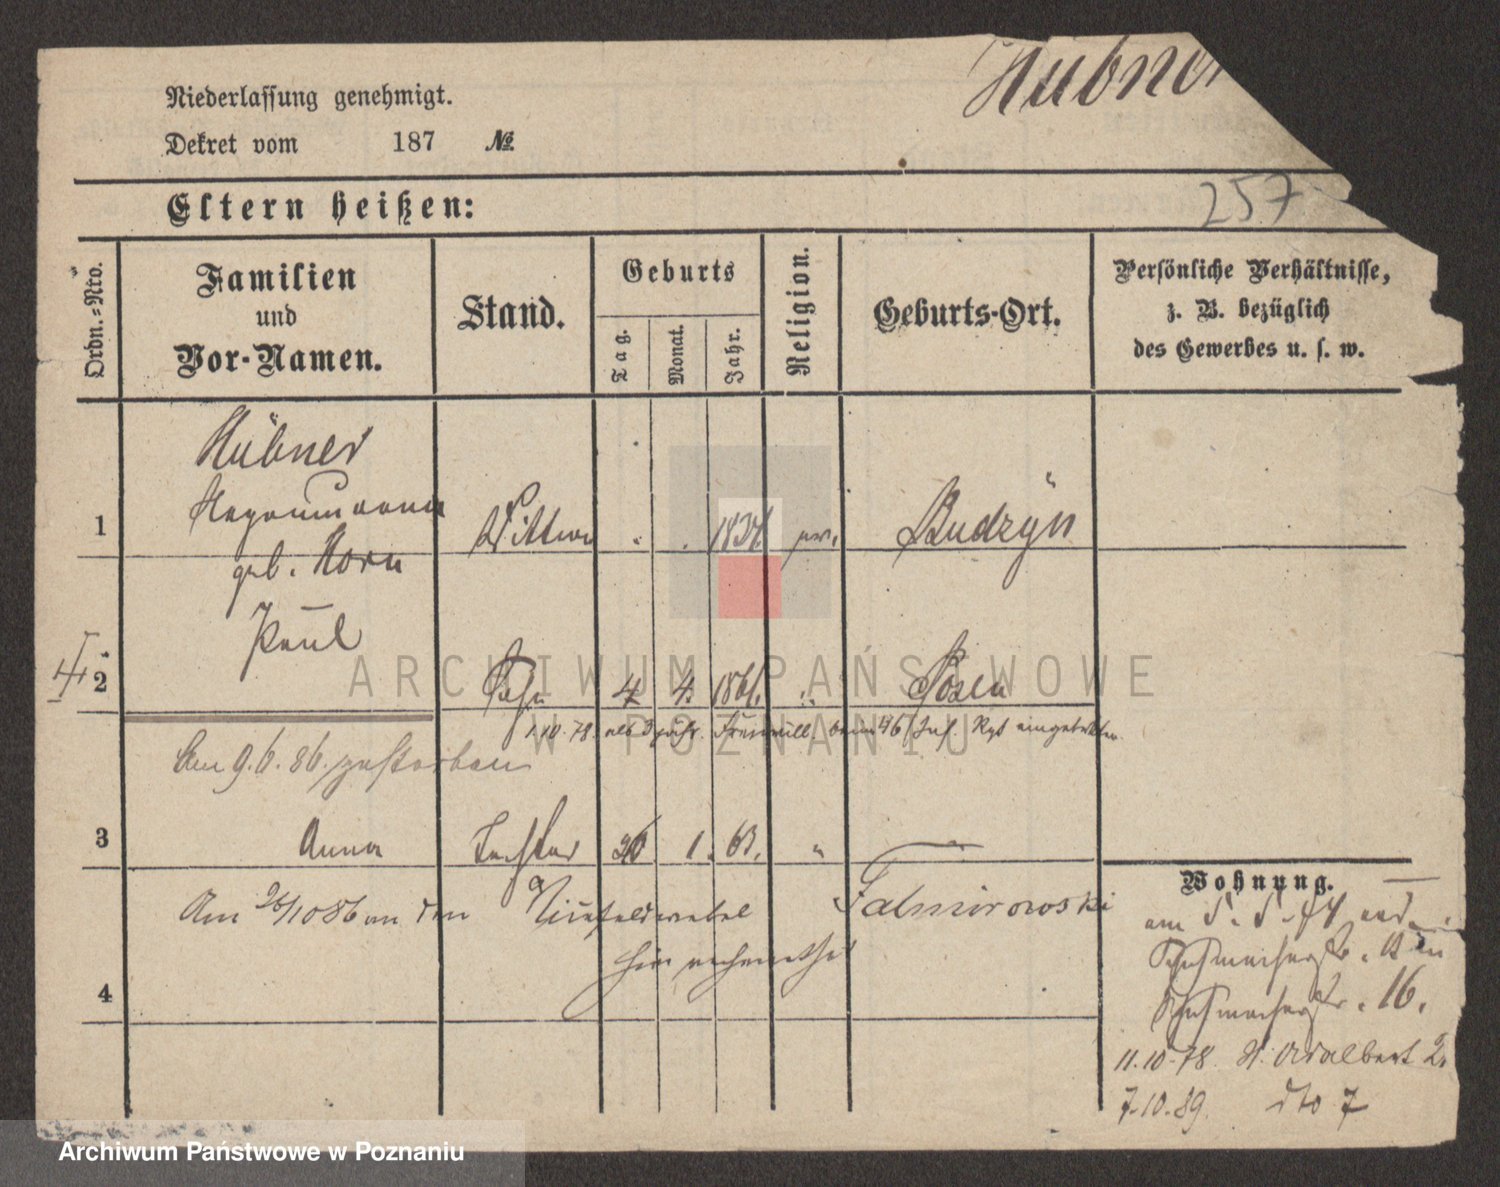 Hübner
Niederlassung genehmigt.
Dekret vom 187 №
257
Eltern heißen:
Ordn.-Nro.
Familien
und
Vor-Namen.
Stand.
Geburts
Tag.
Monat.
Jahr.
Religion.
Geburts-Ort.
Persönliche Verhältnisse,
z. B. bezüglich
des Gewerbes u. s. w.
Hübner
geb. Horn
1 Wittwe Budzyn
Paul
2 Sohn 4. 4. 1861. " Posen
1.10.78. als 3 jähr. Freiwill. beim 46 Inf. Rgt eingetreten
Am 9.6.86. gestorben
3 Anna Tochter 26 1. 63. "
Am 26/10 86 an den Vizefeldwebel Talmirowski
hier verheirathet
4
Wohnung.
Schuhmacherstr.
Schuhmacherstr. 16.
11.10.78 St. Adalbert 2.
7.10.89. dto 7
ARCHIWUM PAŃSTWOWE
W POZNANIU
Archiwum Państwowe w Poznaniu